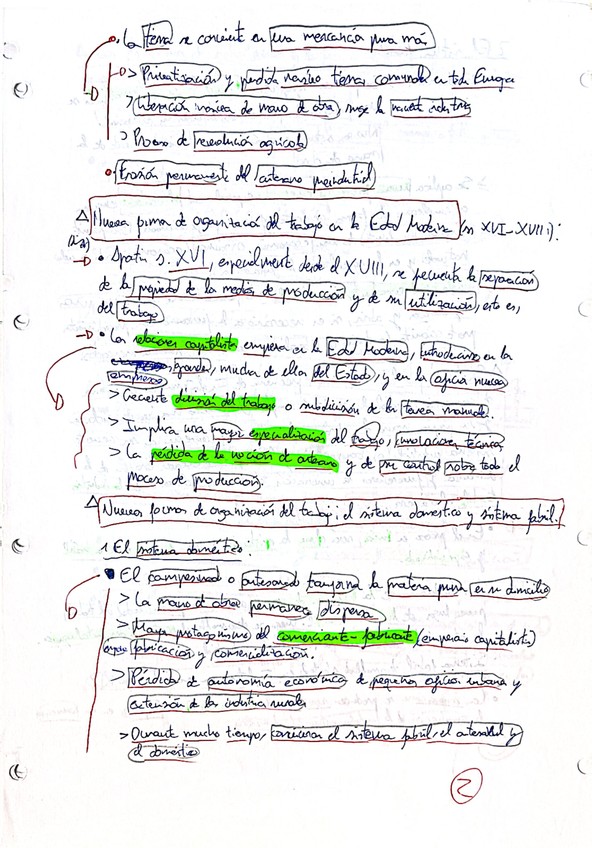 • La tierra se convierte en una mercancía para más
> Privatización y pérdida masiva tierras comunales en toda Europa
> Liberación masiva de mano de obra, surge la naciente industria
> Proceso de revolución agrícola
• Erosión permanente del artesano preindustrial
△ Nuevas formas de organización del trabajo en la Edad Moderna (ss XVI-XVIII):
• Apartir s. XVI, especialmente desde el XVIII, se la separación
de la propiedad de los medios de producción y de su utilización, esto es,
del trabajo
• Las relaciones capitalistas empiezan en la Edad Moderna, en las
grandes empresas, muchas de ellas del Estado, y en los oficios nuevos
> Creciente división del trabajo o subdivisión de las tareas manuales.
> Implica una mayor especialización del trabajo, innovaciones técnicas
> La pérdida de la noción de artesano y de su control sobre todo el
proceso de producción.
△ Nuevas formas de organización del trabajo; el sistema doméstico y sistema fabril.
1. El sistema doméstico:
• El campesinado o artesanado transforma la materia prima en su domicilio
> La mano de obra permanece dispersa
> Mayor protagonismo del comerciante-fabricante (empresario capitalista)
fabricación y comercialización.
> Pérdida de autonomía económica de pequeños oficios urbanos y
extensión de las industrias rurales
> Durante mucho tiempo, convivieron el sistema fabril, el artesanal y
el doméstico
2